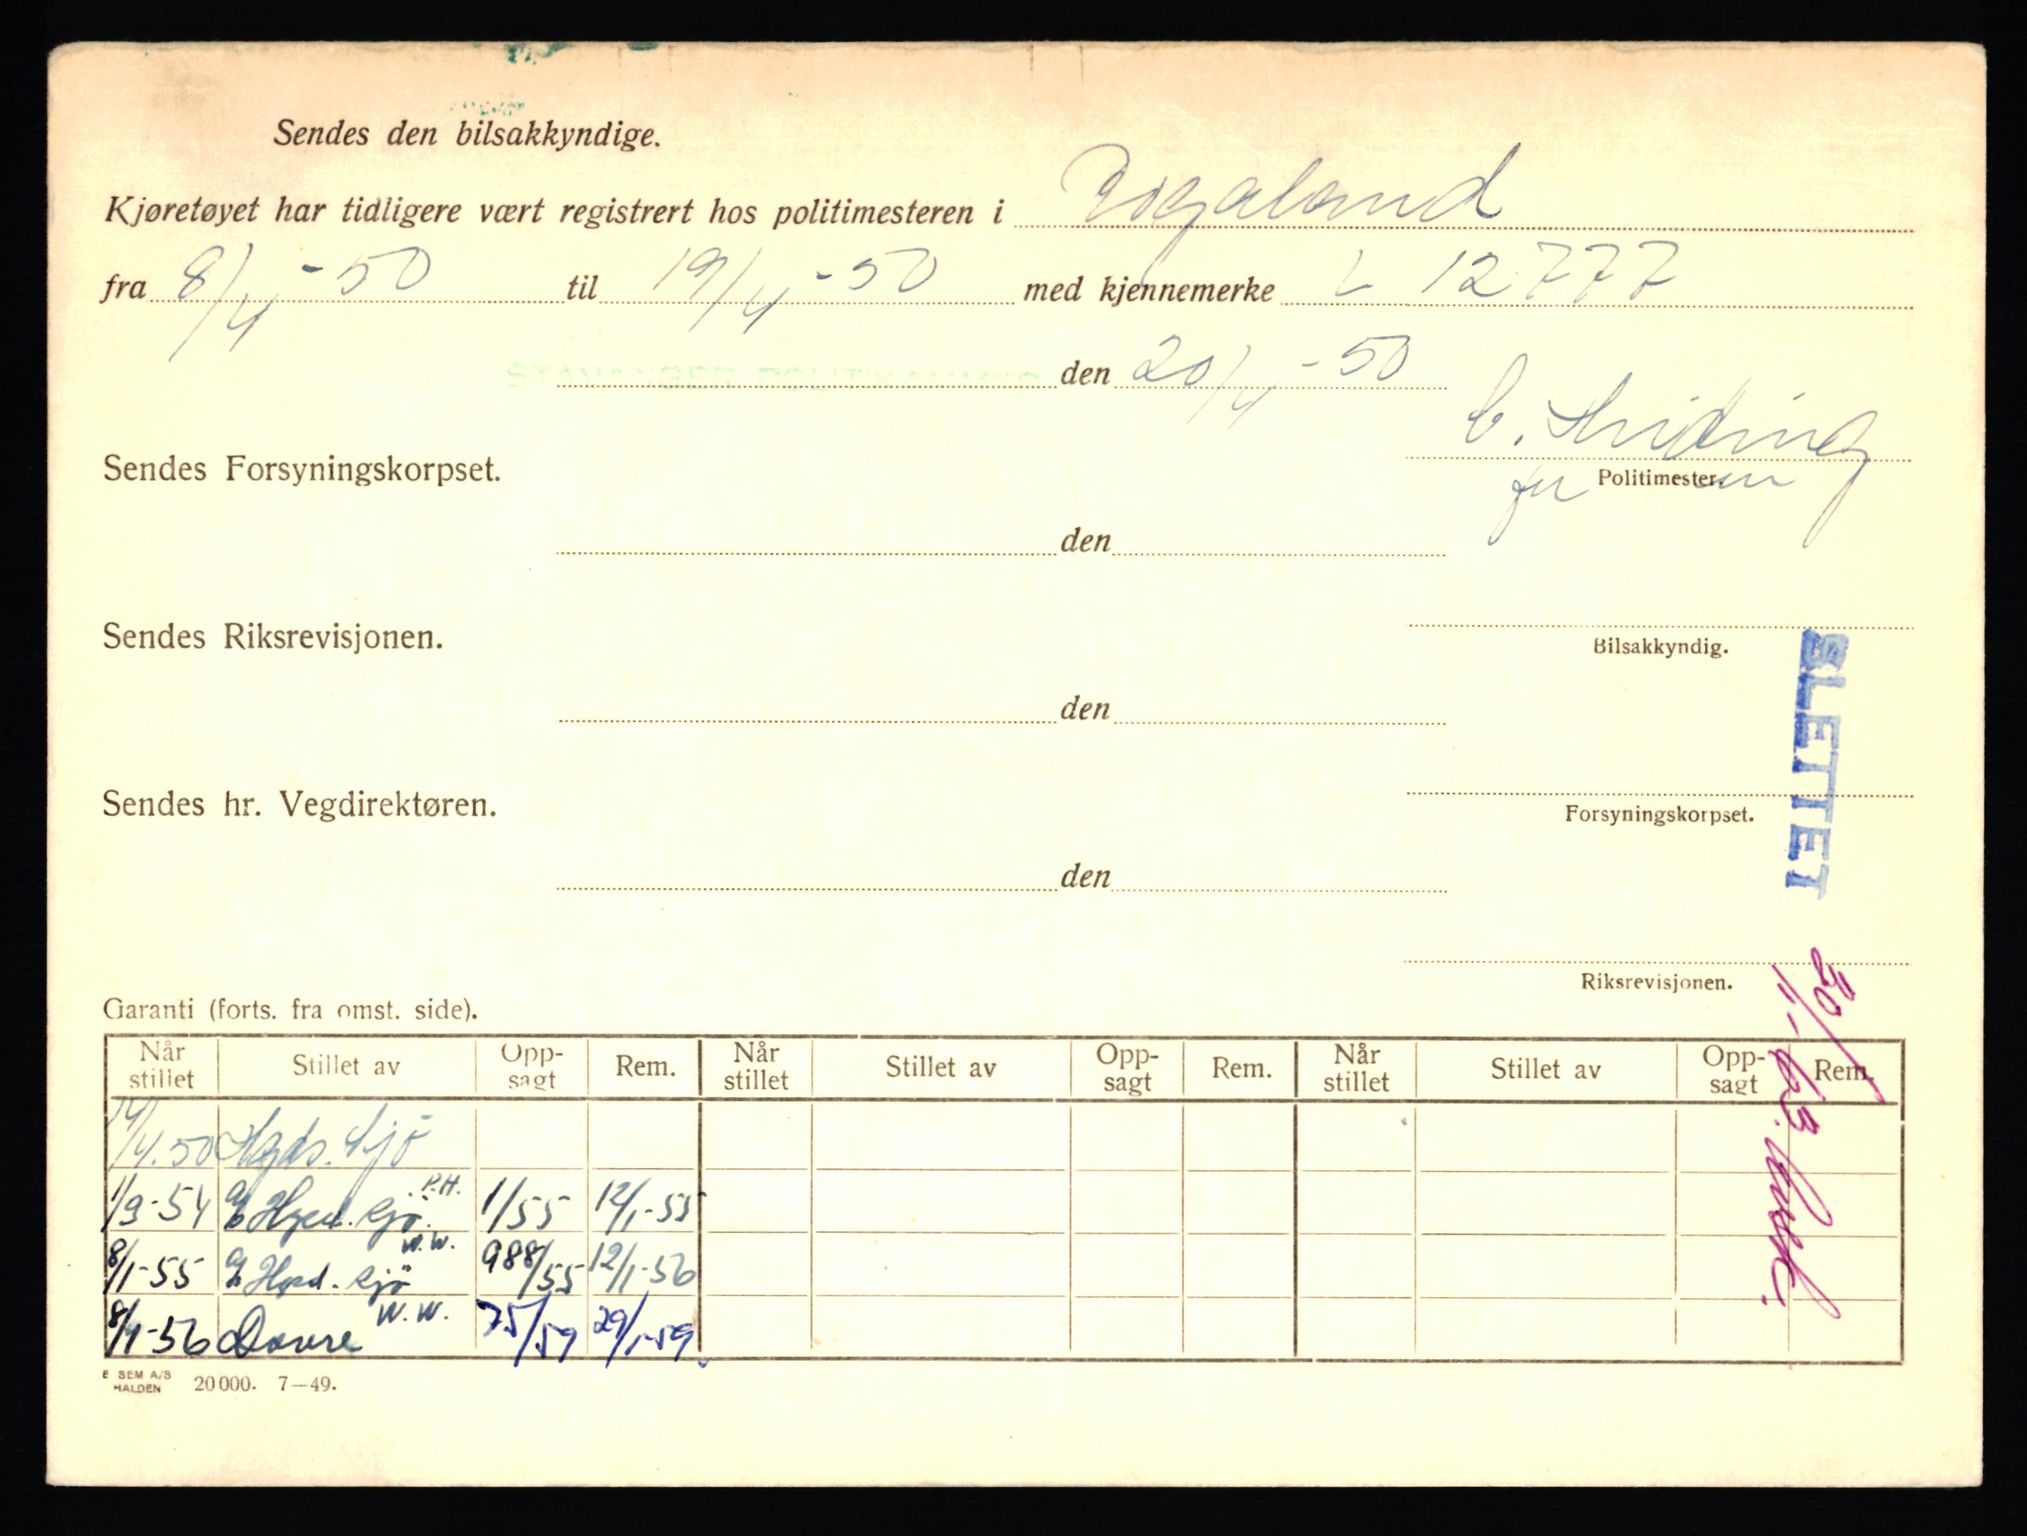 Sendes den bilsakkyndige.
Kjøretøyet har tidligere vært registrert hos politimesteren i Rogaland
fra 8/4 - 50 til 19/4 - 50 med kjennemerke L 12777
STAVANGER POLITIKAMMER den 20/4 - 50
Sendes Forsyningskorpset.
Politimester.
den
Sendes Riksrevisjonen.
Bilsakkyndig.
den
Sendes hr. Vegdirektøren.
Forsyningskorpset.
den
Riksrevisjonen.
SLETTET
Garanti (forts. fra omst. side).
Når stillet Stillet av Oppsagt Rem. Når stillet Stillet av Oppsagt Rem. Når stillet Stillet av Oppsagt Rem.
/4.50 Sjö
1/9-54 Sjö. P.H. 1/55 12/1-55
8/1-55 Hged. Sjö W.W. 988/55 12/1-56
8/1-56 Dovre W.W. 75/59 29/1-59
E SEM A/S
HALDEN 20000. 7—49.